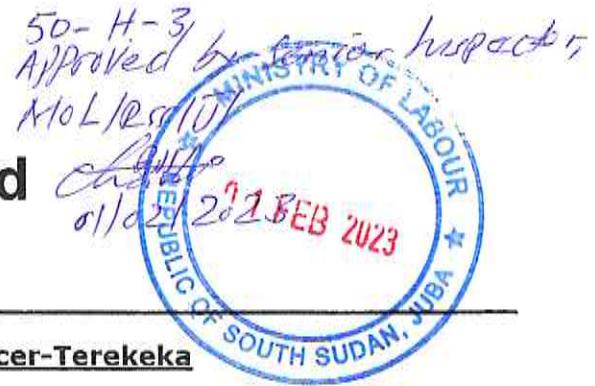 50-H-3
Approved by Senior Inspector,
MOL/RSS/
d
01/02/2023
MINISTRY OF LABOUR
01 FEB 2023
REPUBLIC OF SOUTH SUDAN, JUBA
cer-Terekeka